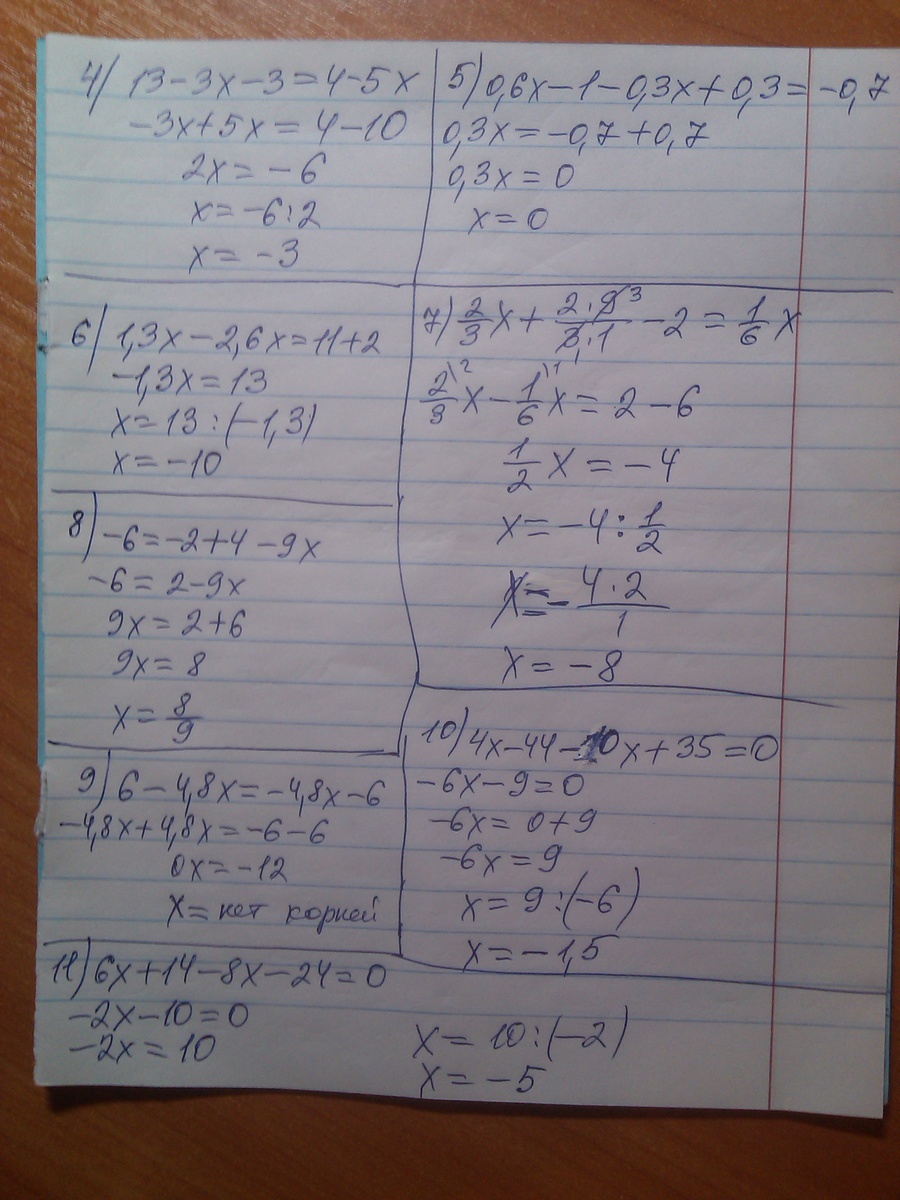 4) 13-3x-3=4-5x
-3x+5x=4-10
2x=-6
x=-6:2
x=-3
5) 0,6x-1-0,3x+0,3=-0,7
0,3x=-0,7+0,7
0,3x=0
x=0
6) 1,3x-2,6x=11+2
-1,3x=13
x=13:(-1,3)
x=-10
7) 2/3 x + 2·9 3/3·1 - 2 = 1/6 x
2\2/3 x - 1\1/6 x = 2-6
1/2 x = -4
x=-4:1/2
x=- 4·2/1
x=-8
8) -6=-2+4-9x
-6=2-9x
9x=2+6
9x=8
x=8/9
9) 6-4,8x=-4,8x-6
-4,8x+4,8x=-6-6
0x=-12
x=нет корней
10) 4x-44-10x+35=0
-6x-9=0
-6x=0+9
-6x=9
x=9:(-6)
x=-1,5
11) 6x+14-8x-24=0
-2x-10=0
-2x=10
x=10:(-2)
x=-5